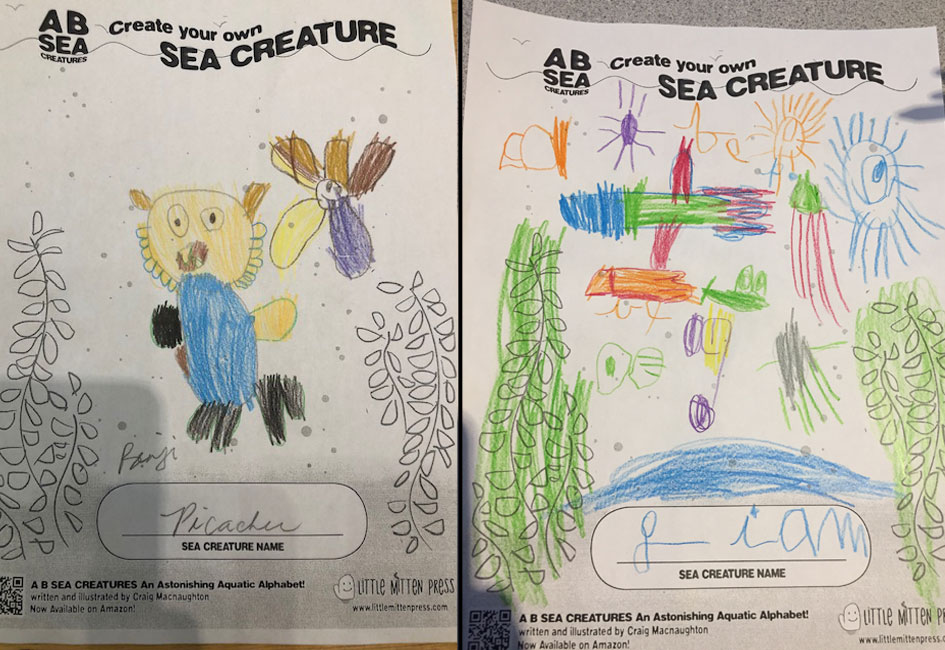 A B
SEA
CREATURES
Create your own
SEA CREATURE
Benji
Picacher
SEA CREATURE NAME
A B SEA CREATURES An Astonishing Aquatic Alphabet!
written and illustrated by Craig Macnaughton
Now Available on Amazon!
LITTLE MITTEN PRESS
www.littlemittenpress.com
A B
SEA
CREATURES
Create your own
SEA CREATURE
iam
SEA CREATURE NAME
A B SEA CREATURES An Astonishing Aquatic Alphabet!
written and illustrated by Craig Macnaughton
Now Available on Amazon!
LITTLE MITTEN PRE
www.littlemittenpress.c